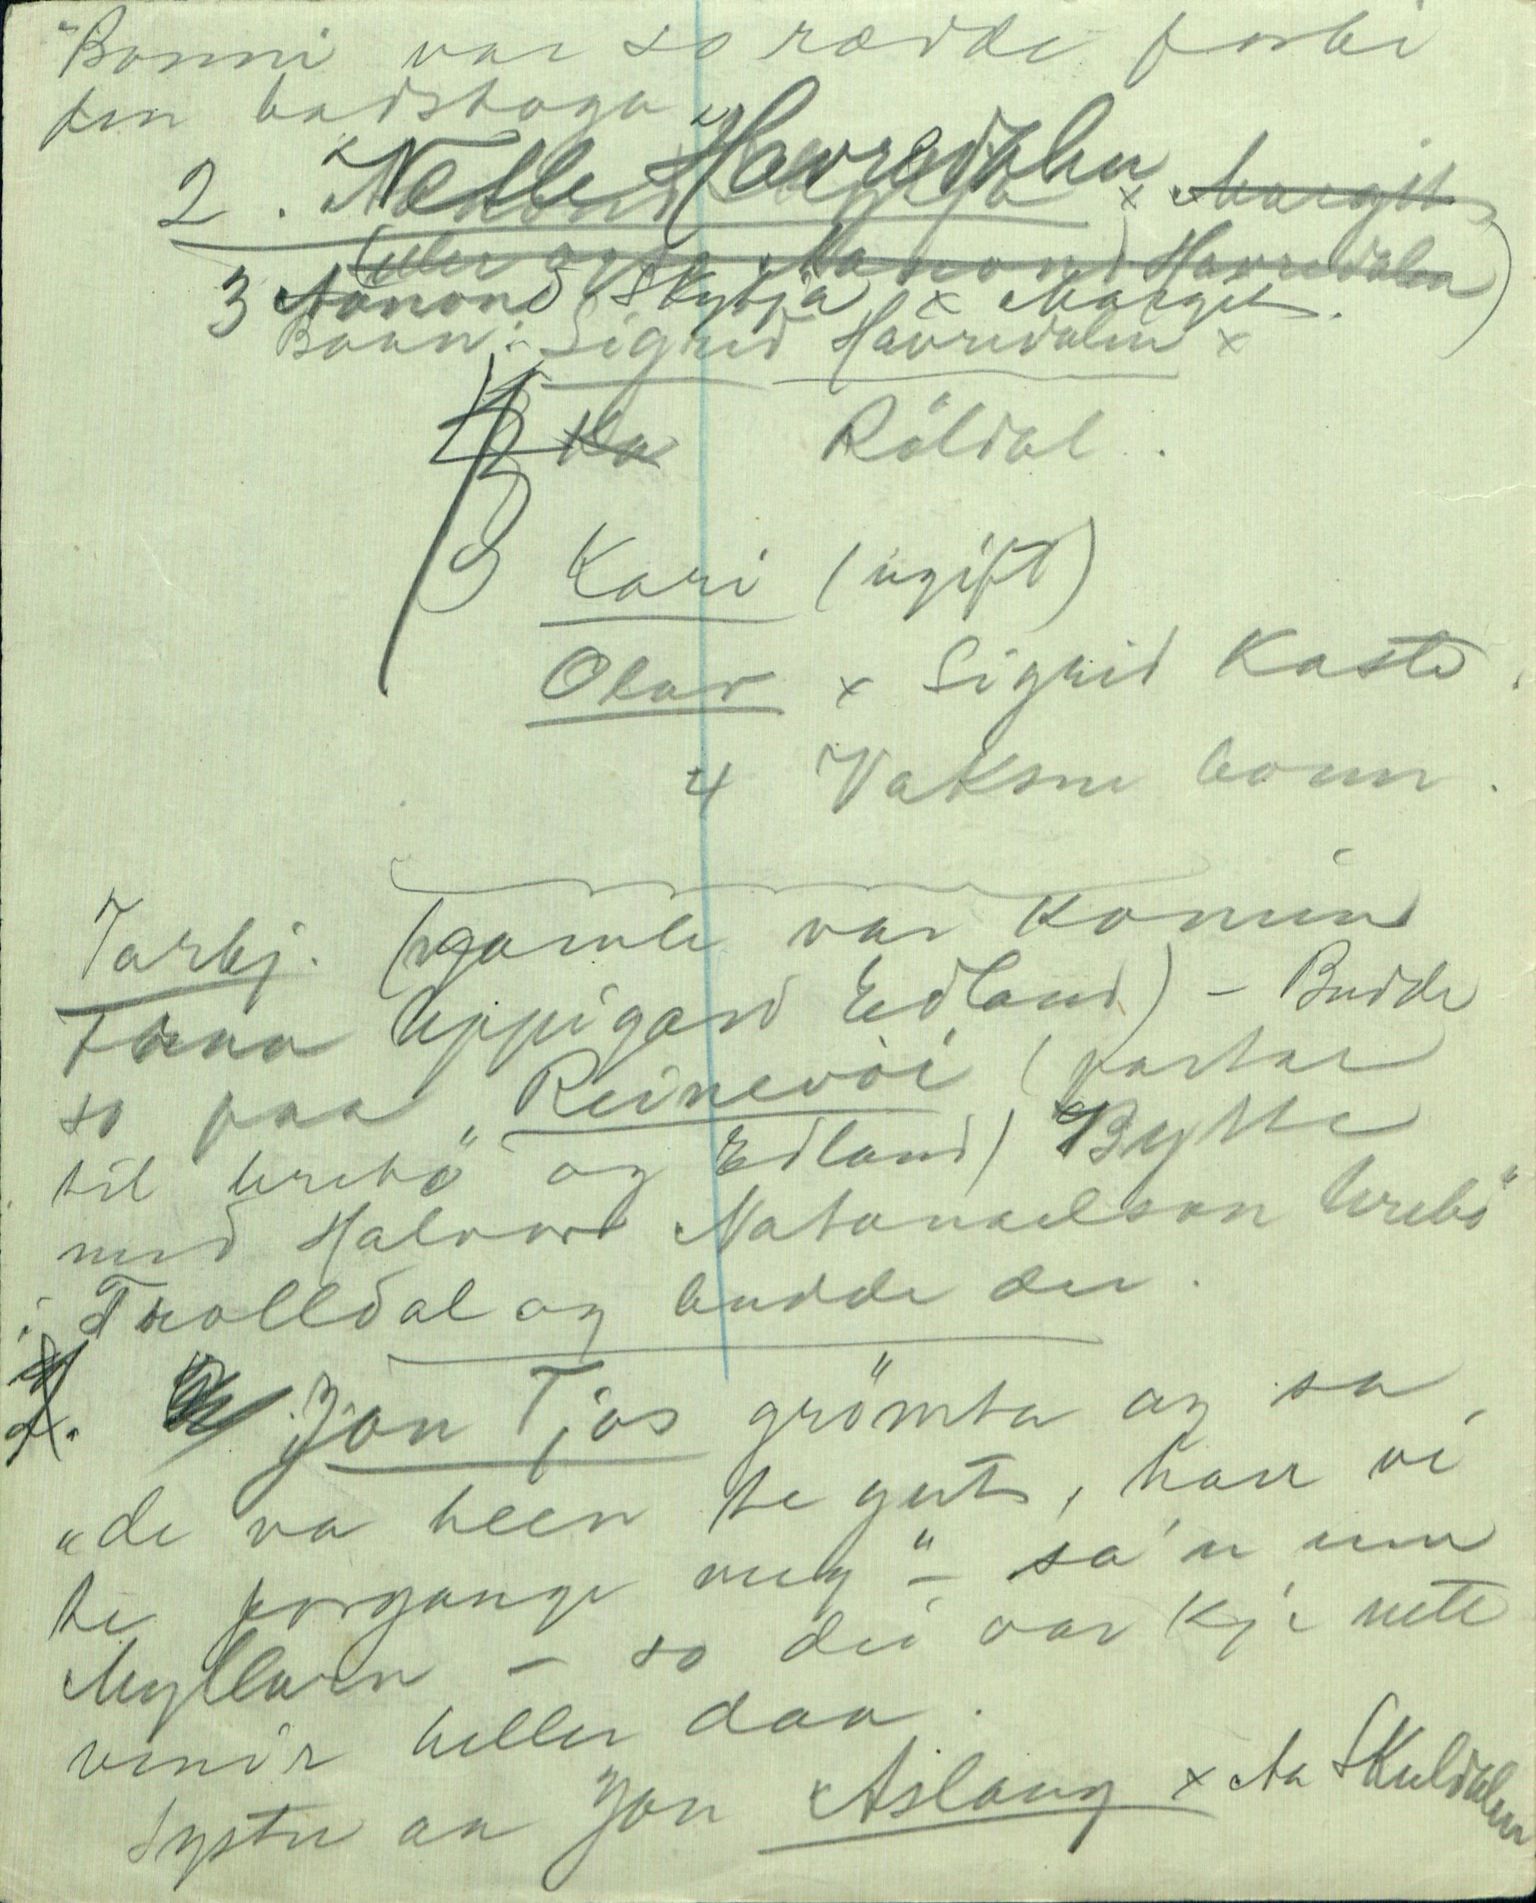 "Bonni var so rædde forbi
den badstoga"
2. Nestle Havredalen x Margit
(eller ogso Aanond Havredalen)
3 Aanond Skytja x Margit.
Baan: Sigrid Havredalen x
Ka Röldal.
Kari (ugift)
Olav x Sigrid Kasti.
4 Vaksne bonn.
Tarbj. (gamle var komin
fraa Uppigard Edland) - Budde
so paa "Reinevöi" (partar
til Urebö og Edland) Bytte
med Halvord Natanaelson Urebö
i Trolldal og budde der.
2. Jon Tjos grömta og sa,
"de va been te guts, han vi
te forgange meg" - sa'n um
Myllaren - so dei var kje nete
venir heller daa.
Syster aa Jon Aslaug x Aa Skuldalen